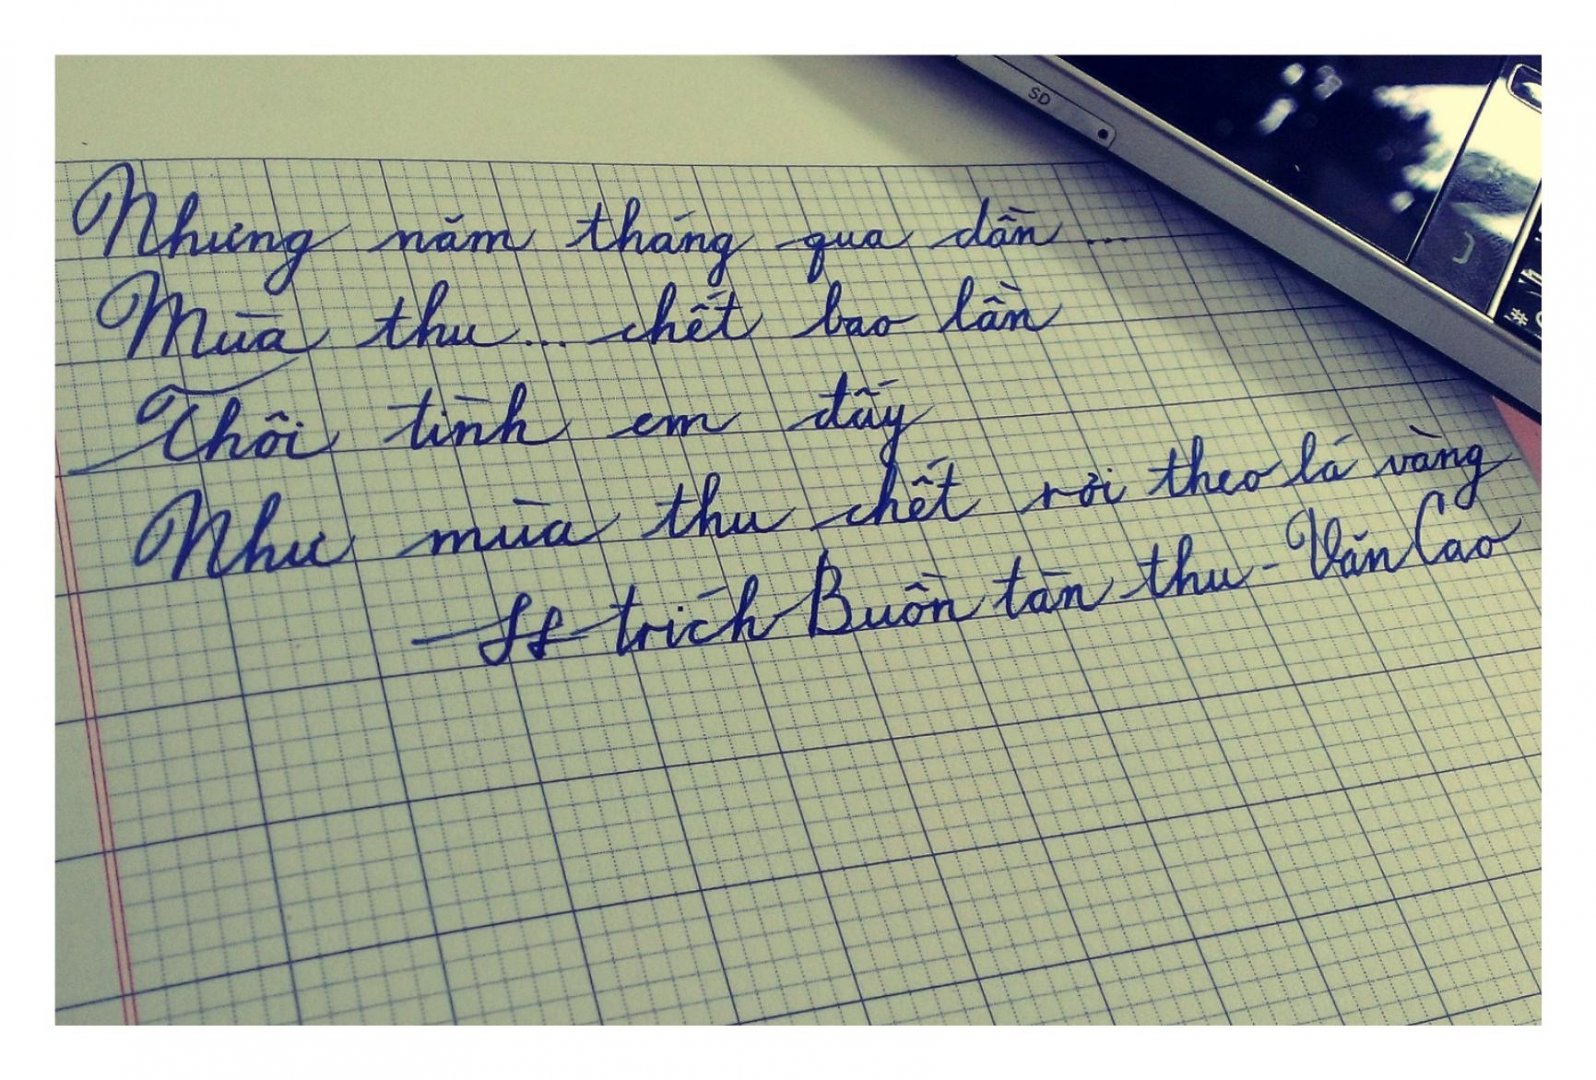 SD
Nhưng năm tháng qua dần ...
Mùa thu ... chết bao lần
Thôi tình em đấy
Như mùa thu chết rơi theo lá vàng
trích Buồn tàn thu - Văn Cao
#